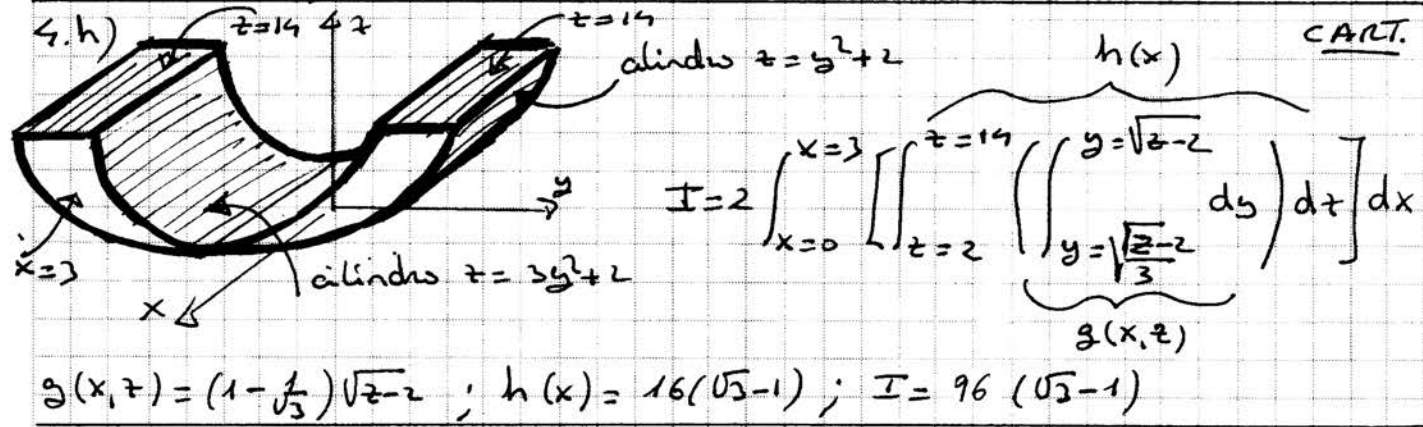 4.h) z=14 z z=14 CART.
cilindro z = y²+2
h(x)
I = 2 ∫_{x=0}^{x=3} [ ∫_{z=2}^{z=14} ( ∫_{y=√((z-2)/3)}^{y=√(z-2)} dy ) dz ] dx
y
x=3
cilindro z = 3y²+2
x
g(x,z)
g(x,z) = (1-1/√3)√(z-2) ; h(x) = 16(√3-1) ; I = 96 (√3-1)